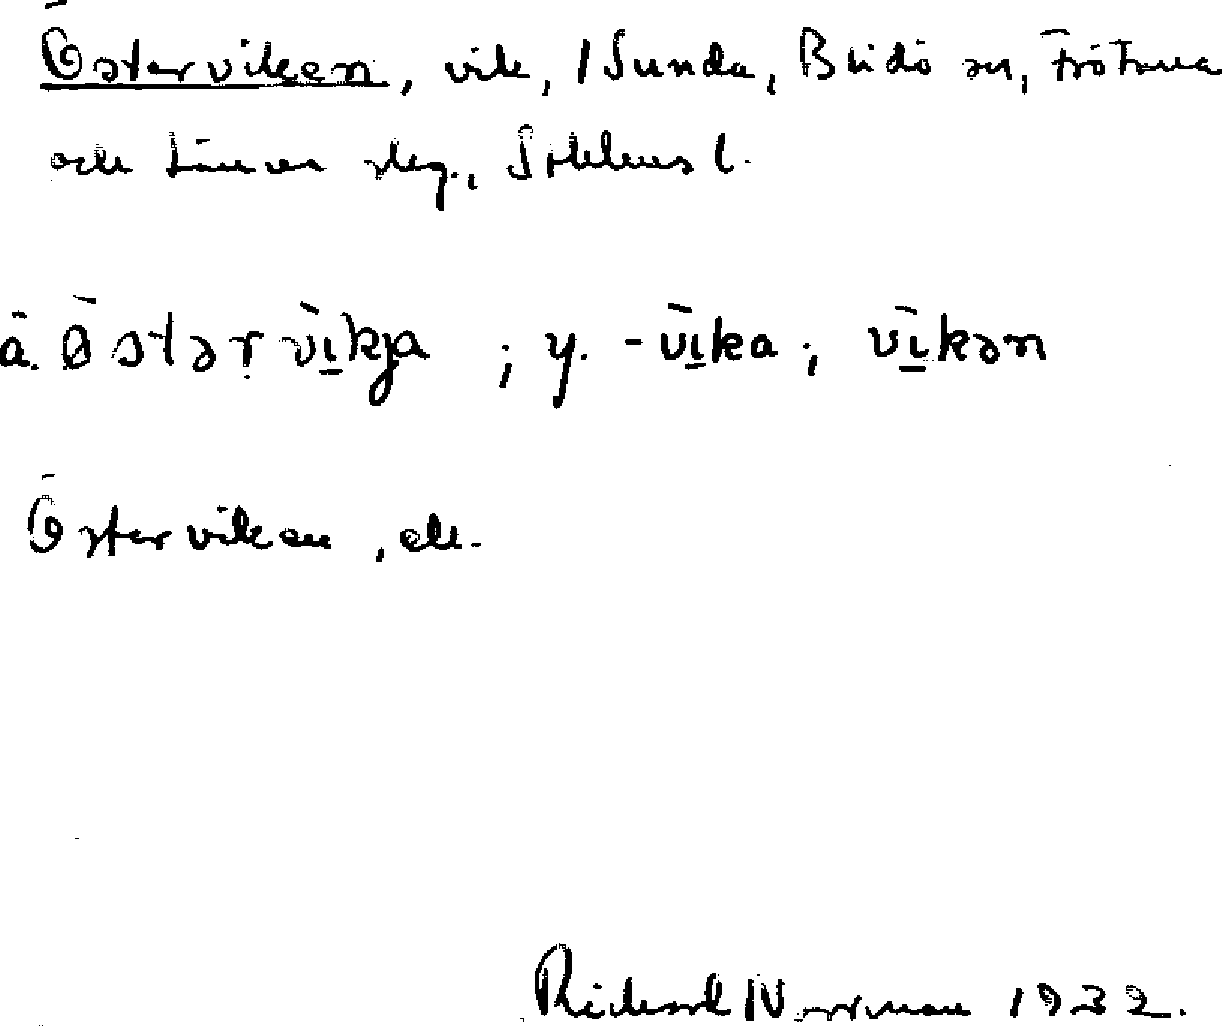 Österviken, vik, Sunda, Blidö sn, Frötuna
och Länna skg., Sthlms l.
ä. östərvikja ; y. -vika ; vikən
Österviken, ek.
Rickard Norrman 1932.